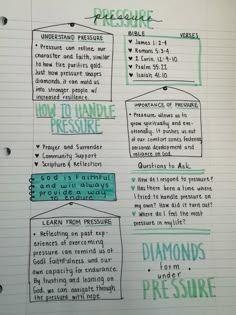 PRESSURE
pressure
UNDERSTAND PRESSURE
• Pressure can refine our
character and faith, similar
to how fire purifies gold.
Just how pressure shapes
diamonds, it can mold us
into stronger people w/
increased resilience.
BIBLE VERSES
♥ James 1:2-4
♥ Romans 5:3-4
♥ 2 Corin. 12:9-10
♥ Psalm 55:22
♥ Isaiah 41:10
HOW TO HANDLE
PRESSURE
♥ Prayer and Surrender
♥ Community Support
♥ Scripture & Reflection
IMPORTANCE OF PRESSURE
• Pressure allows us to
grow spiritually and emo-
tionally. It pushes us out
of our comfort zones, fostering
personal development and
reliance on God.
GOD IS FAITHFUL
and will always
provide a way
to endure
Questions to Ask
♥ How do I respond to pressure?
♥ Has there been a time where
I tried to handle pressure on
my own? How did it turn out?
♥ Where do I feel the most
pressure in my life?
LEARN FROM PRESSURE
• Reflecting on past exp-
eriences of overcoming
pressure can remind us of
God's faithfulness and our
own capacity for endurance.
By trusting and leaning on
God, we can navigate through
the pressure with hope
DIAMONDS
form
under
PRESSURE